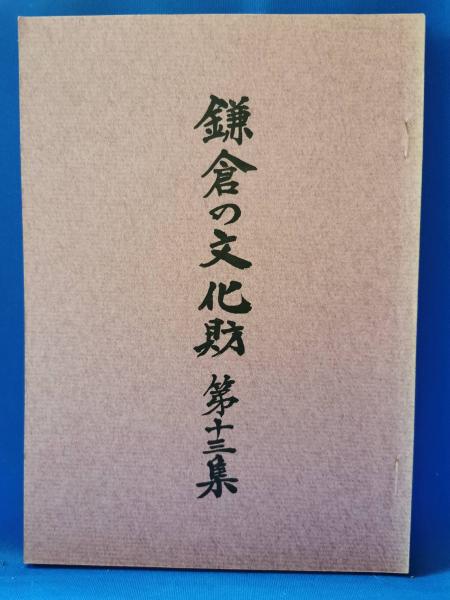 鎌倉の文化財 第十三集